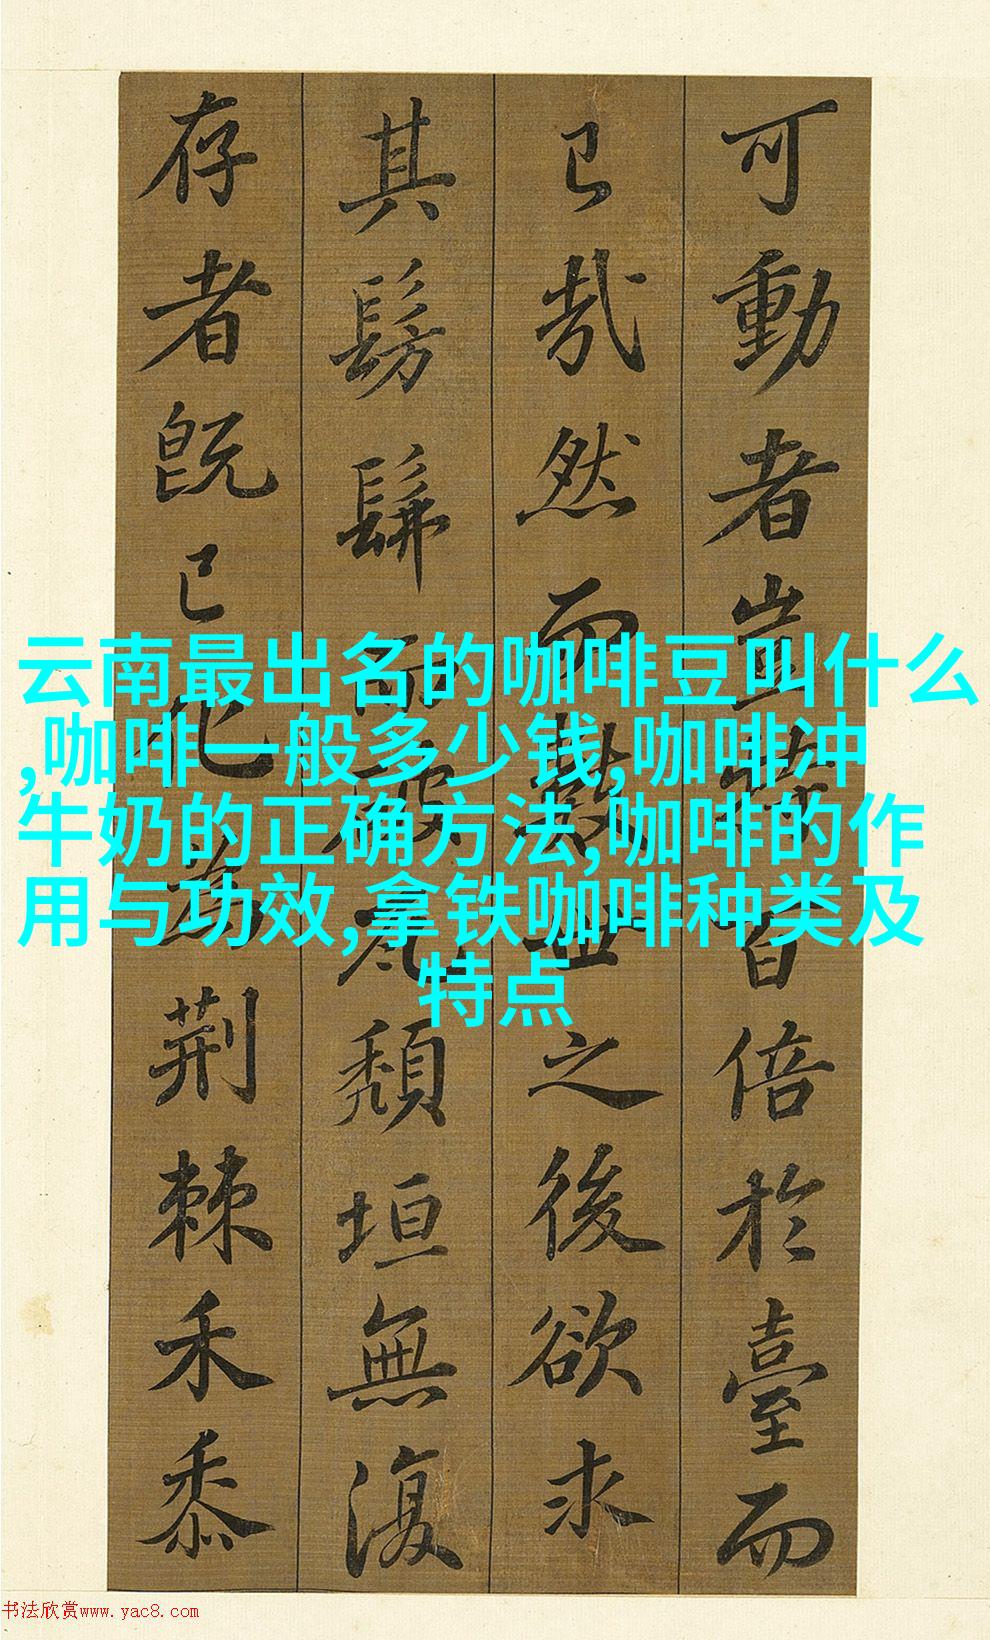 可動者豈特百倍於臺而
已哉然而數世之後欲求
其髣髴而破瓦頹垣無復
存者既已化為荊棘禾黍
云南最出名的咖啡豆叫什么
,咖啡一般多少钱,咖啡冲
牛奶的正确方法,咖啡的作
用与功效,拿铁咖啡种类及
特点
书法欣赏www.yac8.com